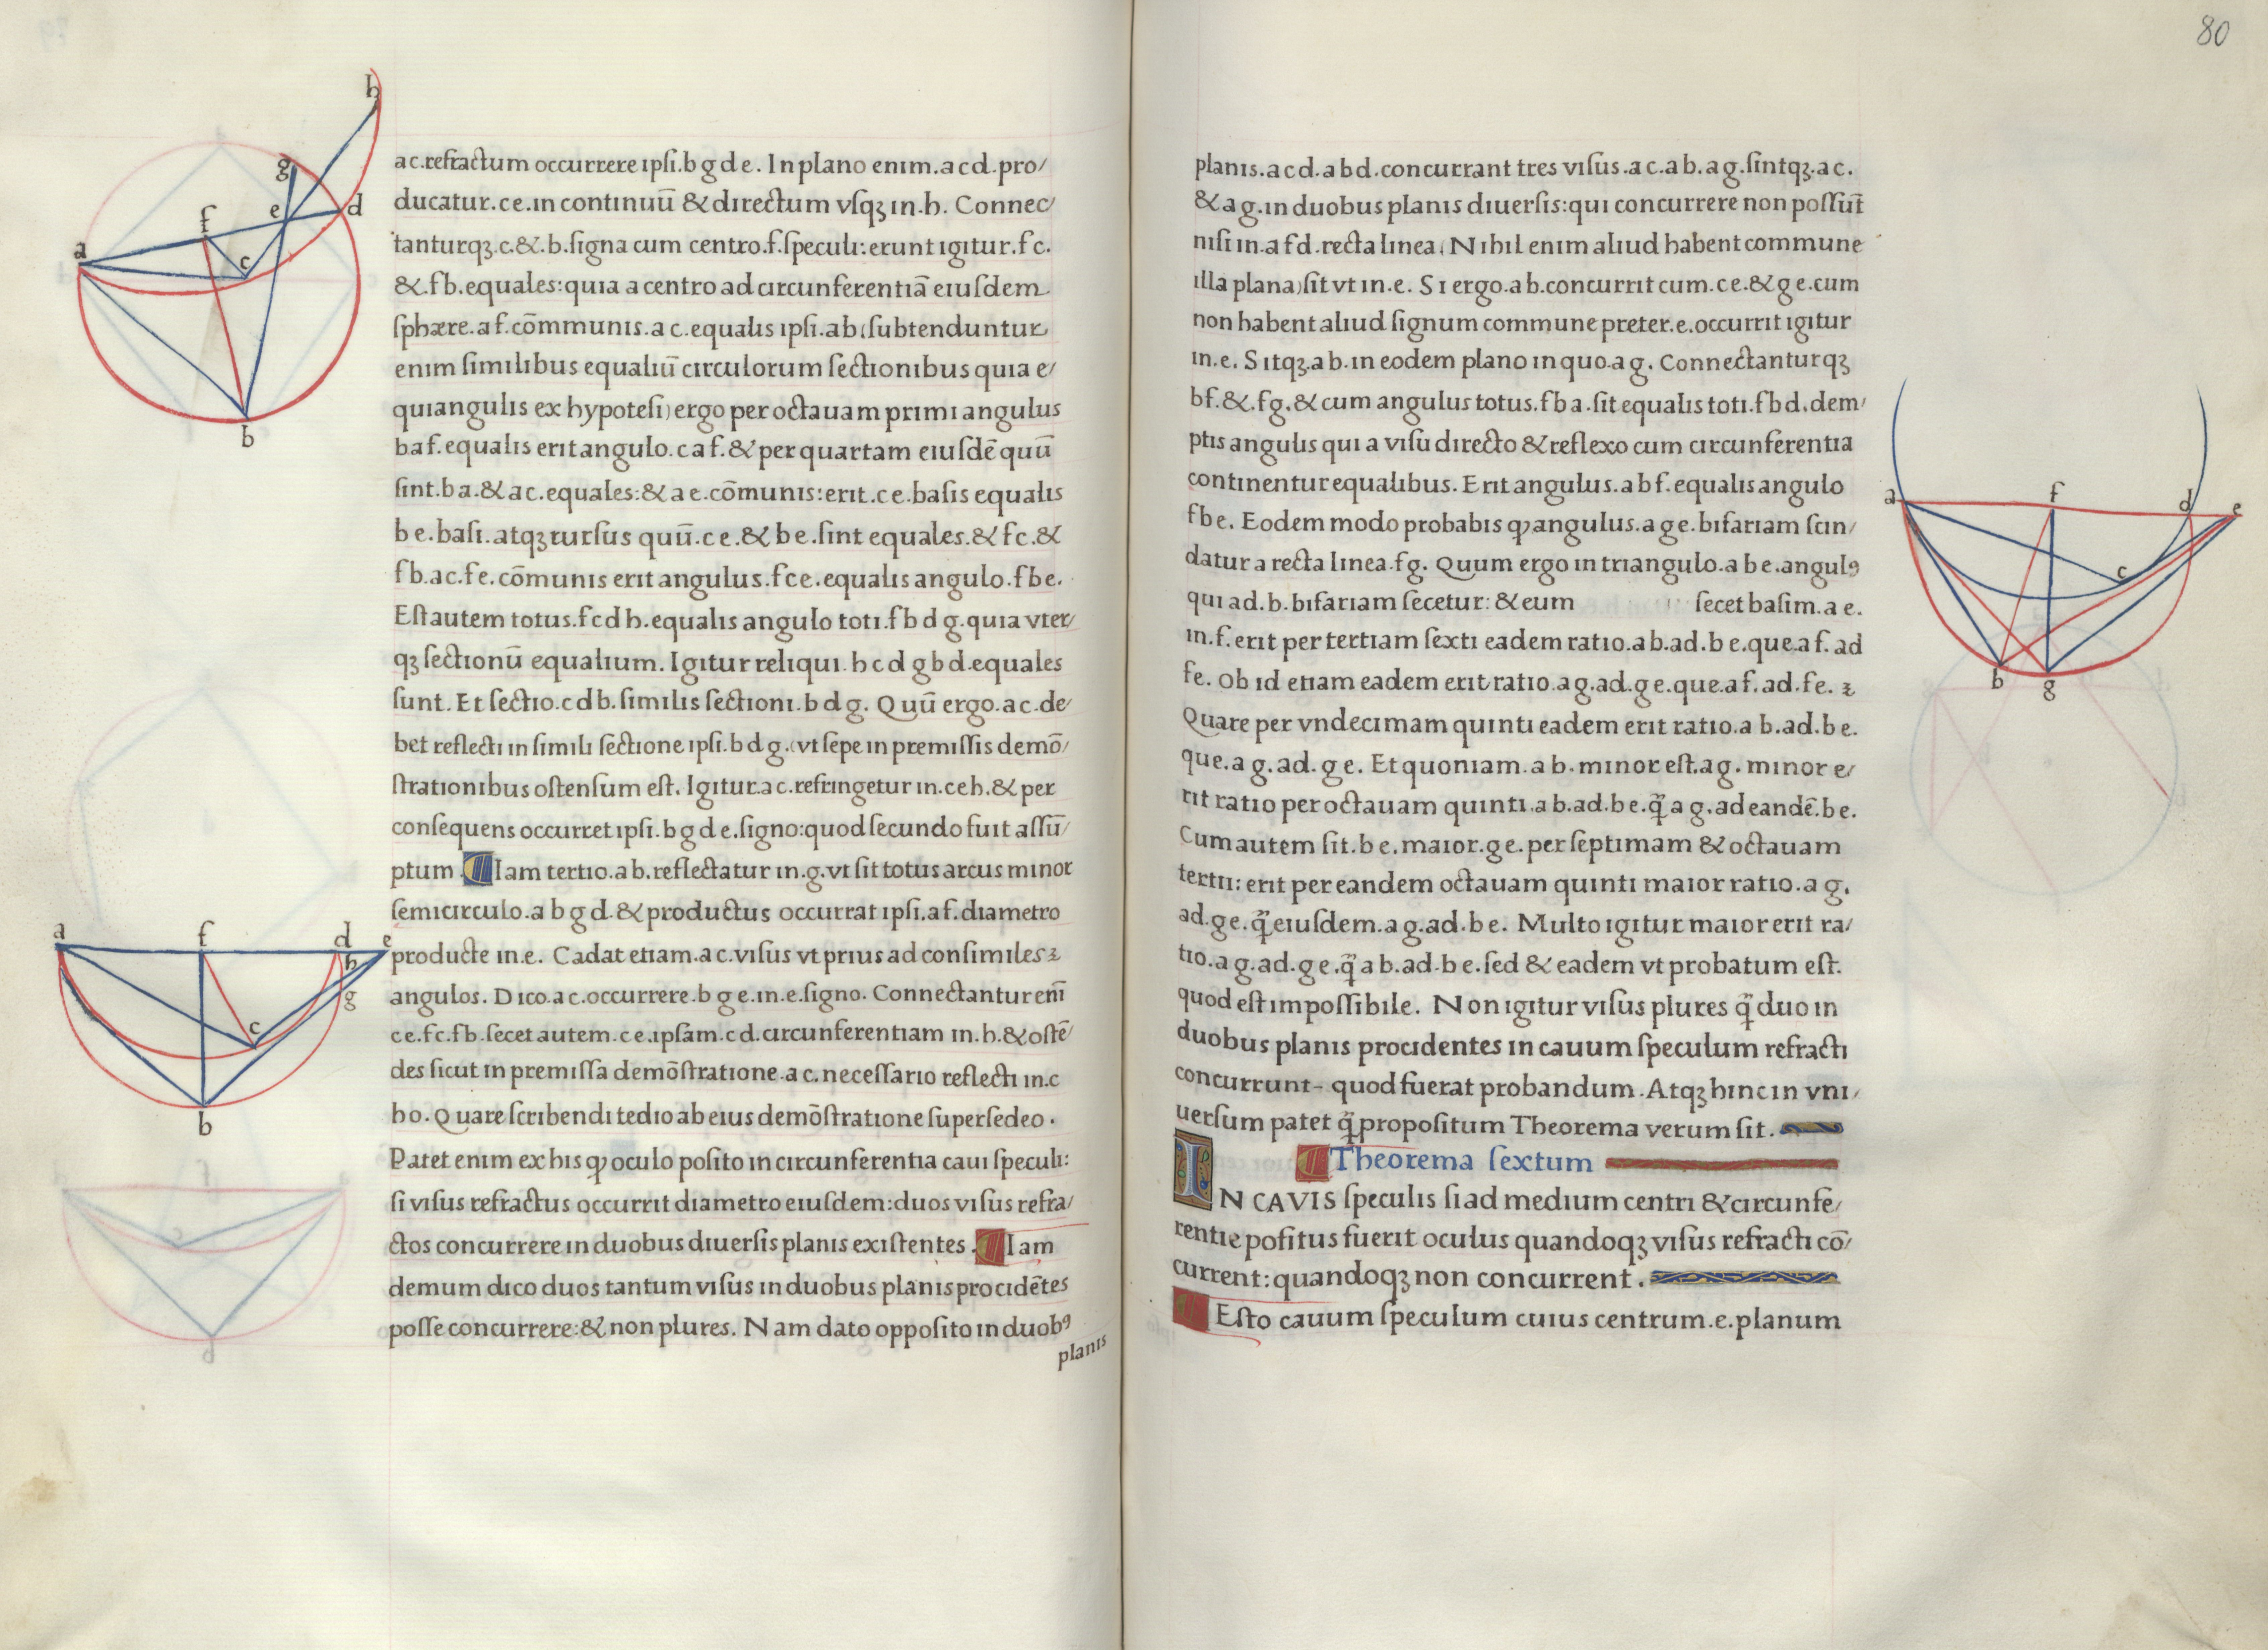 h
g
e
d
f
a
c
b
ac.refractum occurrere ipſi.b g d e. In plano enim.a c d.pro/
ducatur.c e.in continuū & directum vſqꝫ in.h. Connec/
tanturqꝫ.c.&.b.ſigna cum centro.f.ſpeculi:erunt igitur.f c.
&.f b.equales:quia a centro ad circunferentiā eiuſdem
ſphære.a f.cōmunis.a c.equalis ipſi.ab(ſubtenduntur
enim ſimilibus equaliū circulorum ſectionibus quia e/
quiangulis ex hypoteſi)ergo per octauam primi angulus
ba f.equalis erit angulo.c a f.& per quartam eiuſdē quū
ſint.b a.& a c.equales:& a e.cōmunis:erit.c e.baſis equalis
b e.baſi.atqꝫ rurſus quū.c e.& b e.ſint equales.& f c.&
f b.ac.fe.cōmunis erit angulus.fce.equalis angulo.f b e.
Eſt autem totus.f c d h.equalis angulo toti.f b d g.quia vter/
qꝫ ſectionū equalium. Igitur reliqui.h c d g b d.equales
ſunt. Et ſectio.c d b.ſimilis ſectioni.b d g. Quū ergo.a c.de/
bet reflecti in ſimili ſectione ipſi.b d g.(vt ſepe in premiſſis demō/
ſtrationibus oſtenſum eſt. Igitur.a c.refringetur in.c e h.& per
conſequens occurret ipſi.b g d e.ſigno:quod ſecundo fuit aſſū/
ptum. Iam tertio.a b.reflectatur in.g.vt ſit totus arcus minor
ſemicirculo.a b g d.& productus occurrat ipſi.a f.diametro
producte in.e. Cadat etiam.a c.viſus vt prius ad conſimiles ꝫ
angulos. Dico.a c.occurrere.b g e.in.e.ſigno. Connectantur enī
c e.f c.f b.ſecet autem.c e.ipſam.c d.circunferentiam in.h.& oſtē/
des ſicut in premiſſa demōſtratione.a c.neceſſario reflecti in.c
h o. Quare ſcribendi tedio ab eius demōſtratione ſuperſedeo.
Patet enim ex his ꝙ oculo poſito in circunferentia caui ſpeculi:
ſi viſus refractus occurrit diametro eiuſdem:duos viſus refra/
ctos concurrere in duobus diuerſis planis exiſtentes. Iam
demum dico duos tantum viſus in duobus planis procidētes
poſſe concurrere:& non plures. Nam dato oppoſito in duobꝰ
planis
a
f
d
e
h
g
c
b
80
planis.a c d.a b d.concurrant tres viſus.a c.a b.a g.ſintqꝫ.a c.
& a g.in duobus planis diuerſis:qui concurrere non poſſūt
niſi in.a f d.recta linea(Nihil enim aliud habent commune
illa plana)ſit vt in.e. Si ergo.a b.concurrit cum.c e.& g e.cum
non habent aliud ſignum commune preter.e.occurrit igitur
in.e. Sitqꝫ.a b.in eodem plano in quo.a g. Connectanturqꝫ
bf.&.fg.& cum angulus totus.f b a.ſit equalis toti.f b d.dem/
ptis angulis qui a viſu directo & reflexo cum circunferentia
continentur equalibus. Erit angulus.a b f.equalis angulo
f b e. Eodem modo probabis ꝙ angulus.a g e.bifariam ſcin/
datur a recta linea.f g. Quum ergo in triangulo.a b e.angulꝰ
qui ad.b.bifariam ſecetur:& eum ſecet baſim.a e.
in.f.erit per tertiam ſexti eadem ratio.a b.ad.b e.que.a f.ad
fe. Ob id etiam eadem erit ratio.a g.ad.g e.que.a f.ad.f e. ꝫ
Quare per vndecimam quinti eadem erit ratio.a b.ad.b e.
que.a g.ad.g e. Et quoniam.a b.minor eſt.a g.minor e/
rit ratio per octauam quinti.a b.ad.b e.q̄ a g.ad eandē.b e.
Cum autem ſit.b e.maior.g e.per ſeptimam & octauam
tertii:erit per eandem octauam quinti maior ratio.a g.
ad.g e.q̄ eiuſdem.a g.ad.b e. Multo igitur maior erit ra/
tio.a g.ad.g e.q̄ a b.ad.b e.ſed & eadem vt probatum eſt.
quod eſt impoſſibile. Non igitur viſus plures q̄ duo in
duobus planis procidentes in cauum ſpeculum refracti
concurrunt- quod fuerat probandum. Atqꝫ hinc in vni/
uerſum patet q̄ propoſitum Theorema verum ſit.
Theorema ſextum
IN CAVIS ſpeculis ſi ad medium centri & circunfe/
rentie poſitus fuerit oculus quandoqꝫ viſus refracti cō/
current:quandoqꝫ non concurrent.
Eſto cauum ſpeculum cuius centrum.e.planum
a
f
d
e
c
b
g